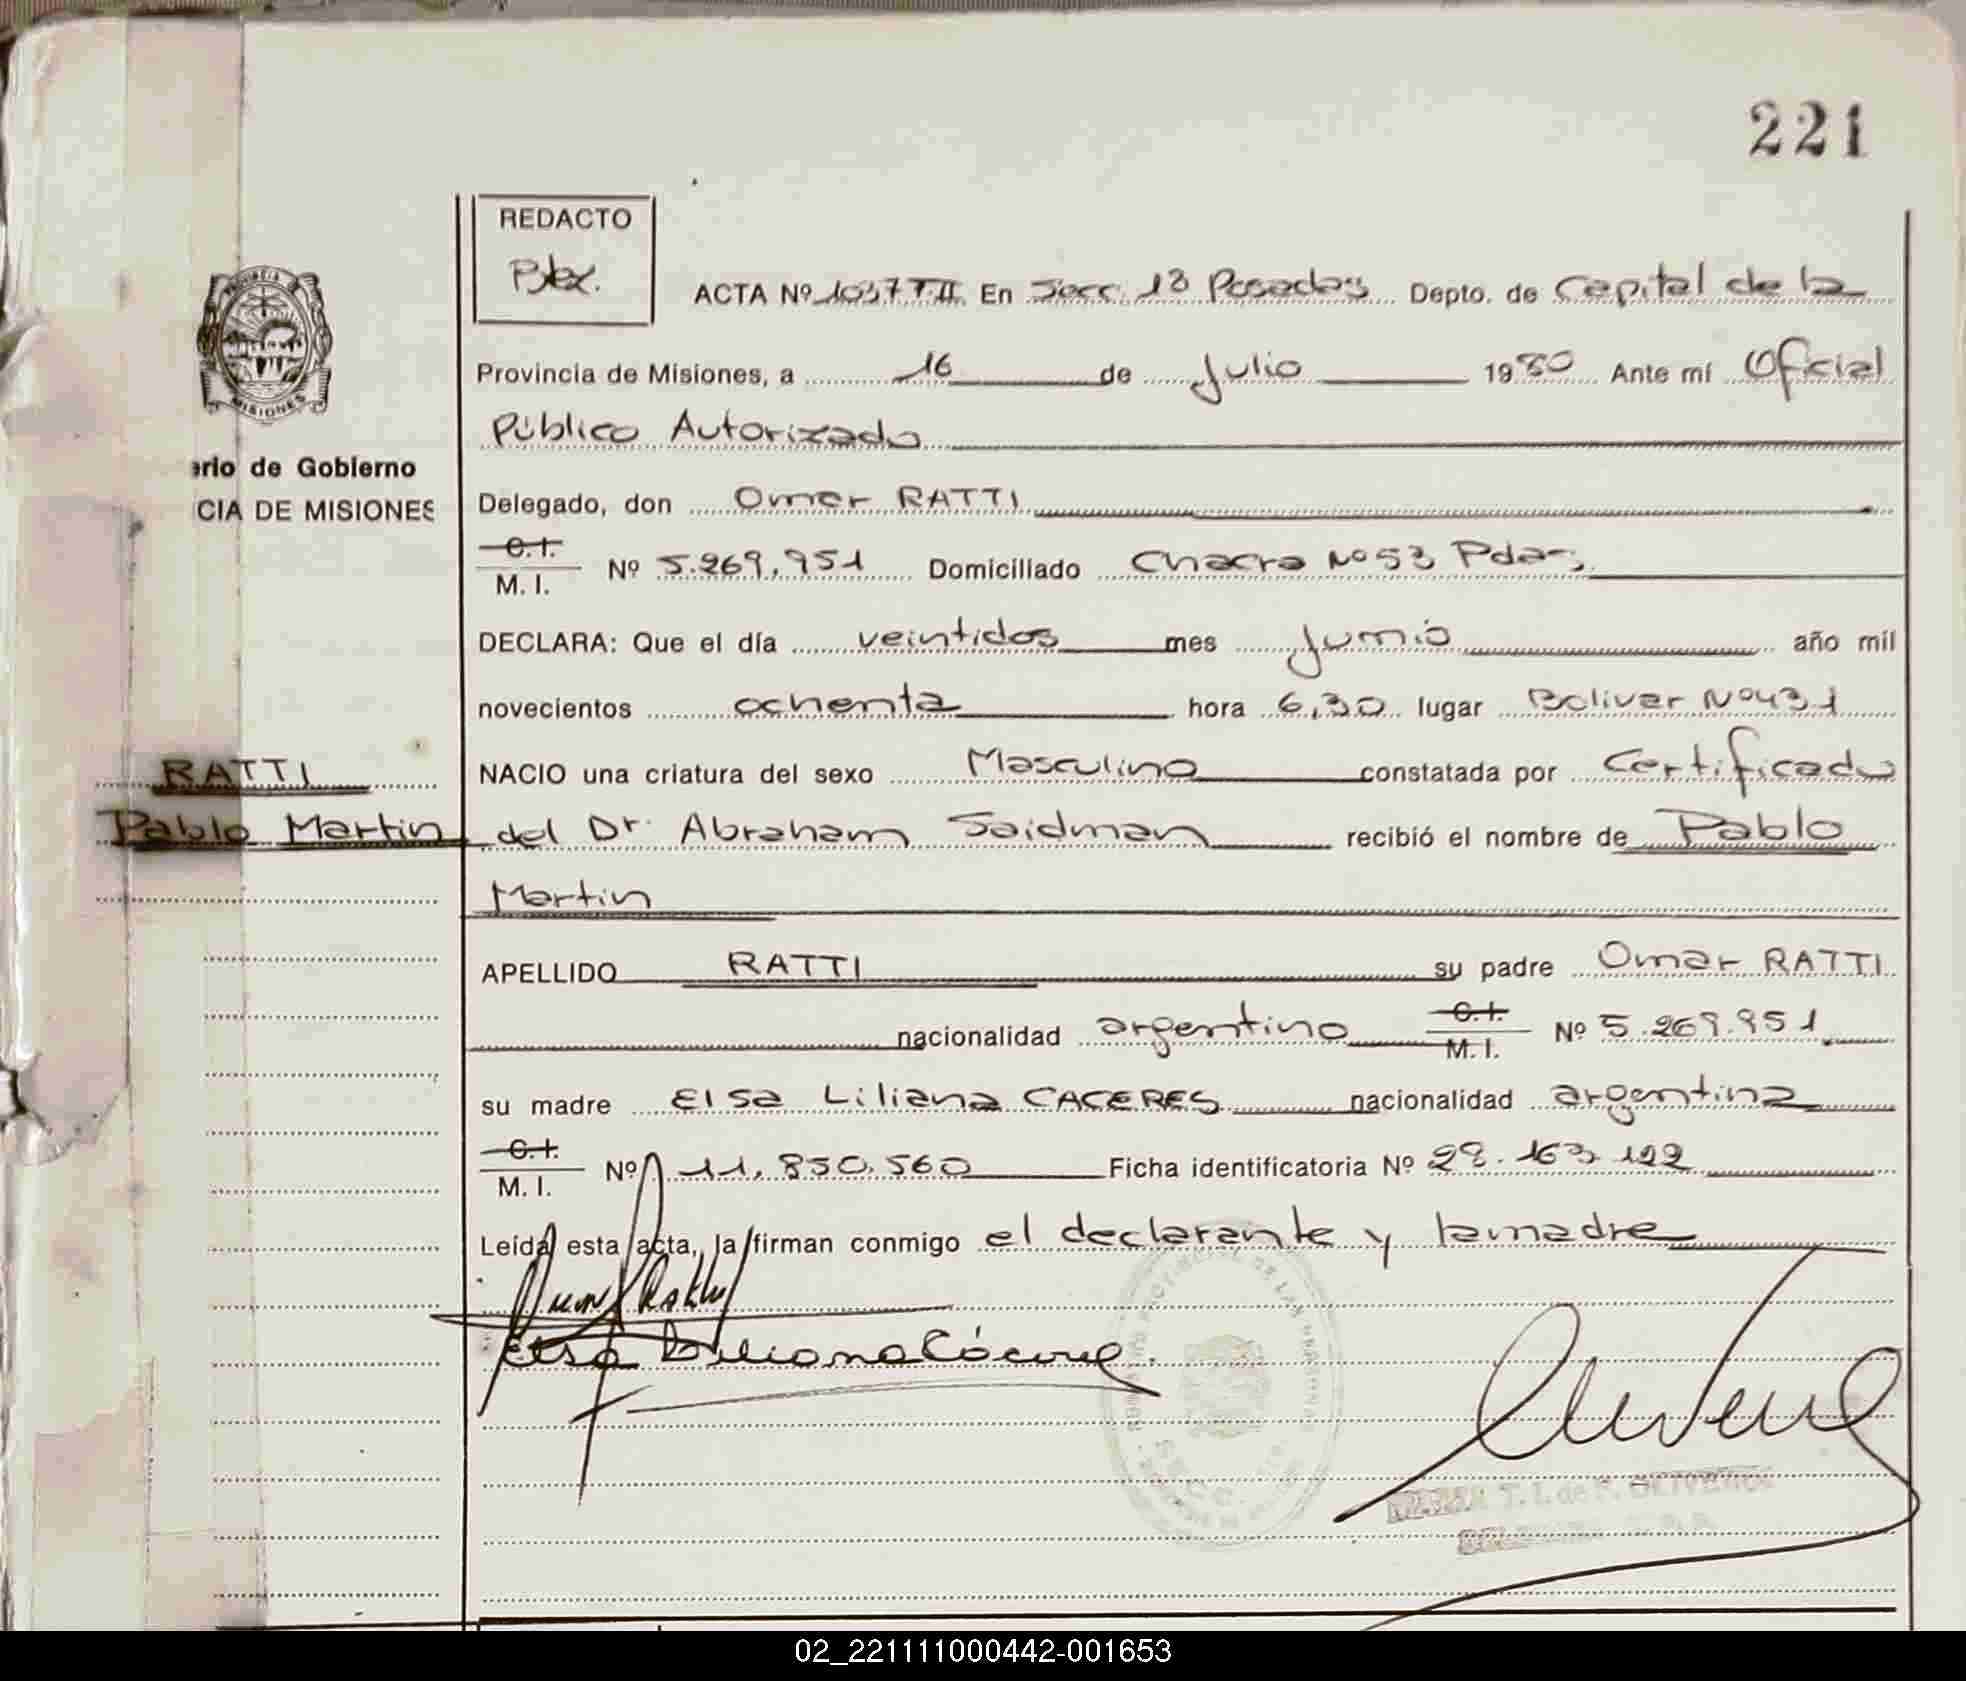 221
REDACTO
ACTA Nº 1037 T.II. En Secc. 1ª Posadas Depto. de Capital de la
PROVINCIA
MISIONES
Provincia de Misiones, a 16 de Julio 1980 Ante mí Oficial
Público Autorizado
erio de Gobierno
CIA DE MISIONES
Delegado, don Omar RATTI
C.I.
M.I. Nº 5.269.951 Domiciliado Chacra Nº 53 Pdas.
DECLARA: Que el día veintidos mes Junio año mil
novecientos ochenta hora 6,30 lugar Bolivar Nº 431
RATTI
NACIO una criatura del sexo Masculino constatada por Certificado
Pablo Martin
del Dr. Abraham Saidman recibió el nombre de Pablo
Martin
APELLIDO RATTI su padre Omar RATTI
nacionalidad argentino C.I. M.I. Nº 5.269.951
su madre Elsa Liliana CACERES nacionalidad argentina
C.I.
M.I. Nº 11.850.560 Ficha identificatoria Nº 28.163.122
Leída esta acta, la firman conmigo el declarante y la madre
Elsa Liliana Cáceres
02_221111000442-001653